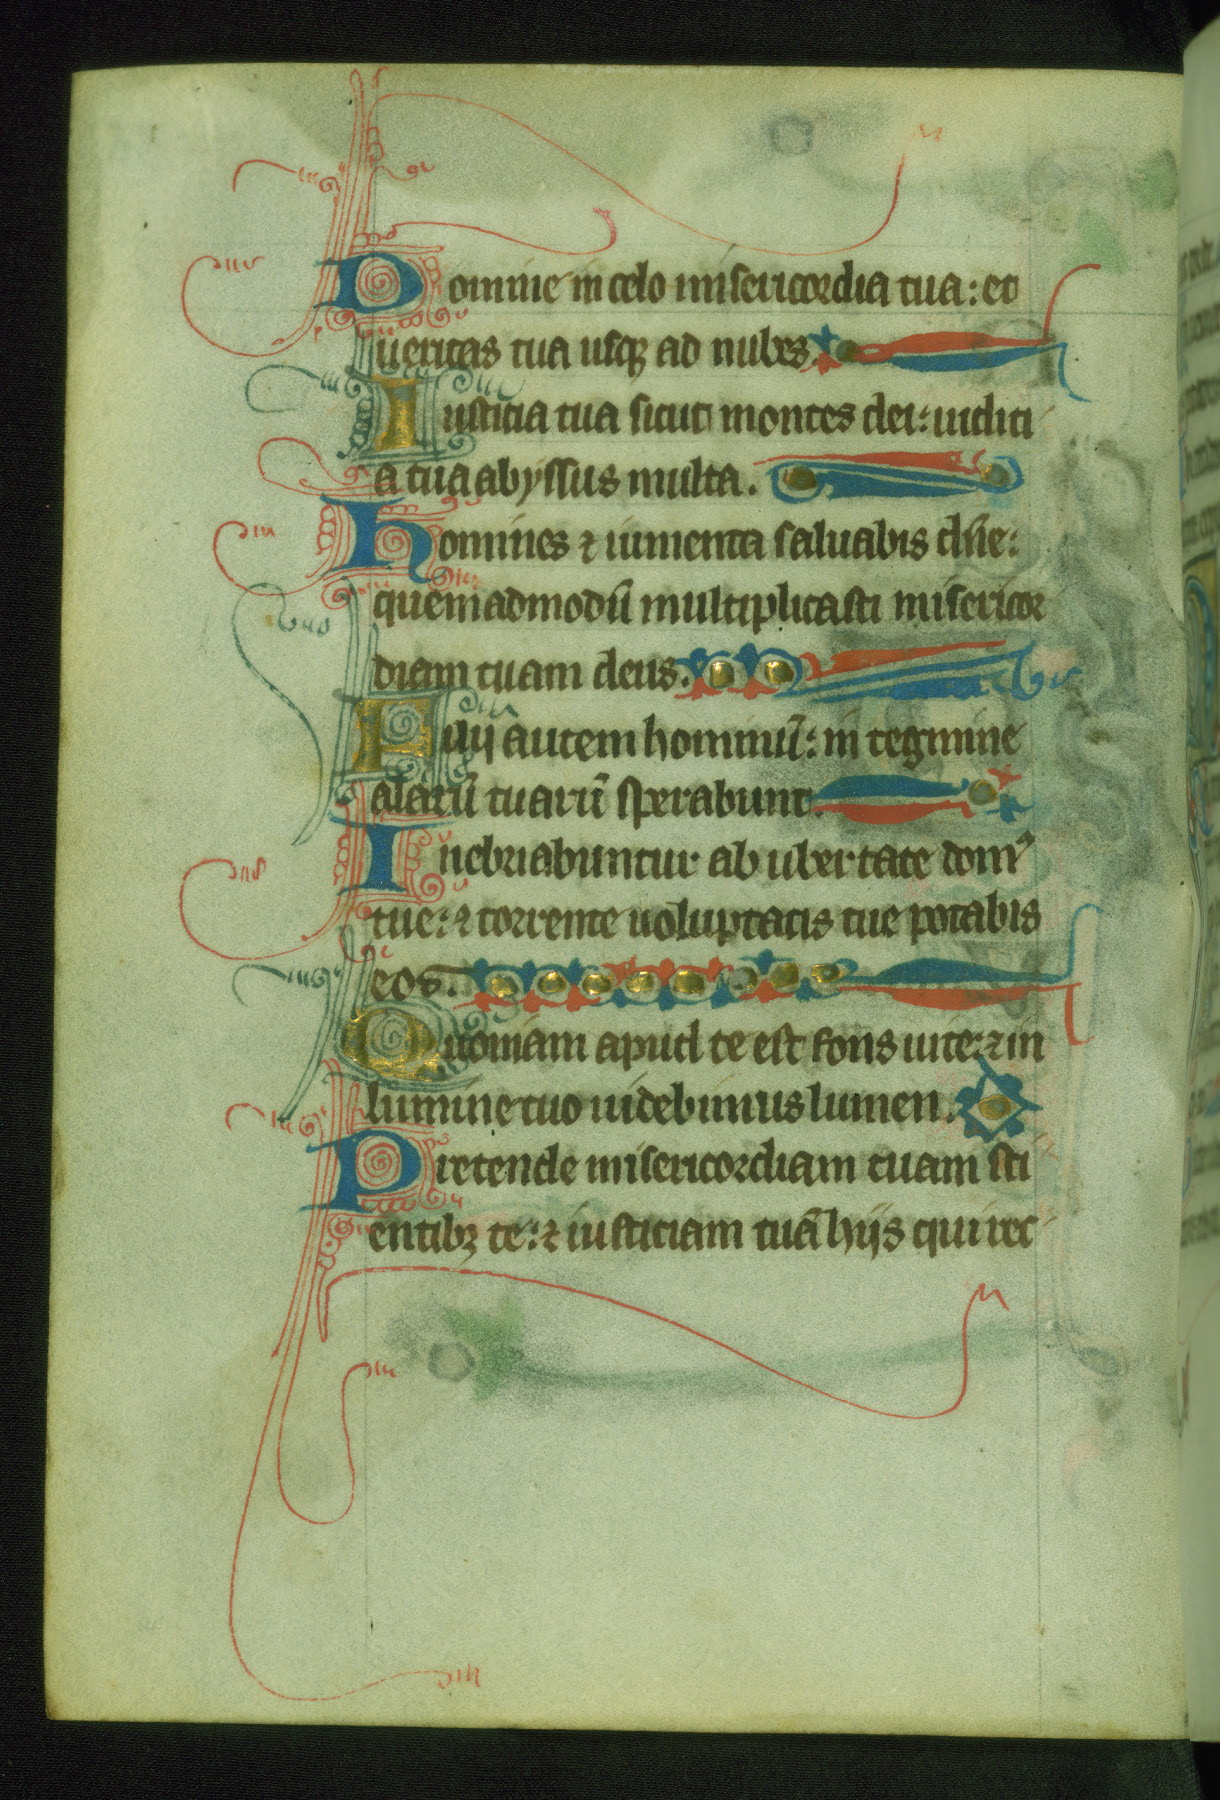 Domine in celo misericordia tua: et
ueritas tua usqꝫ ad nubes.
Iusticia tua sicut montes dei: iudici
a tua abyssus multa.
Homines ⁊ iumenta saluabis dn̄e:
quemadmodū multiplicasti misericor
diam tuam deus.
Filij autem hominū: in tegmine
alarū tuarū sperabunt.
Inebriabuntur ab ubertate domꝰ
tue: ⁊ torrente uoluptatis tue potabis
eos.
Quoniam apud te est fons uite: ⁊ in
lumine tuo uidebimus lumen.
Pretende misericordiam tuam sci
entibꝫ te: ⁊ iusticiam tuā hijs qui rec